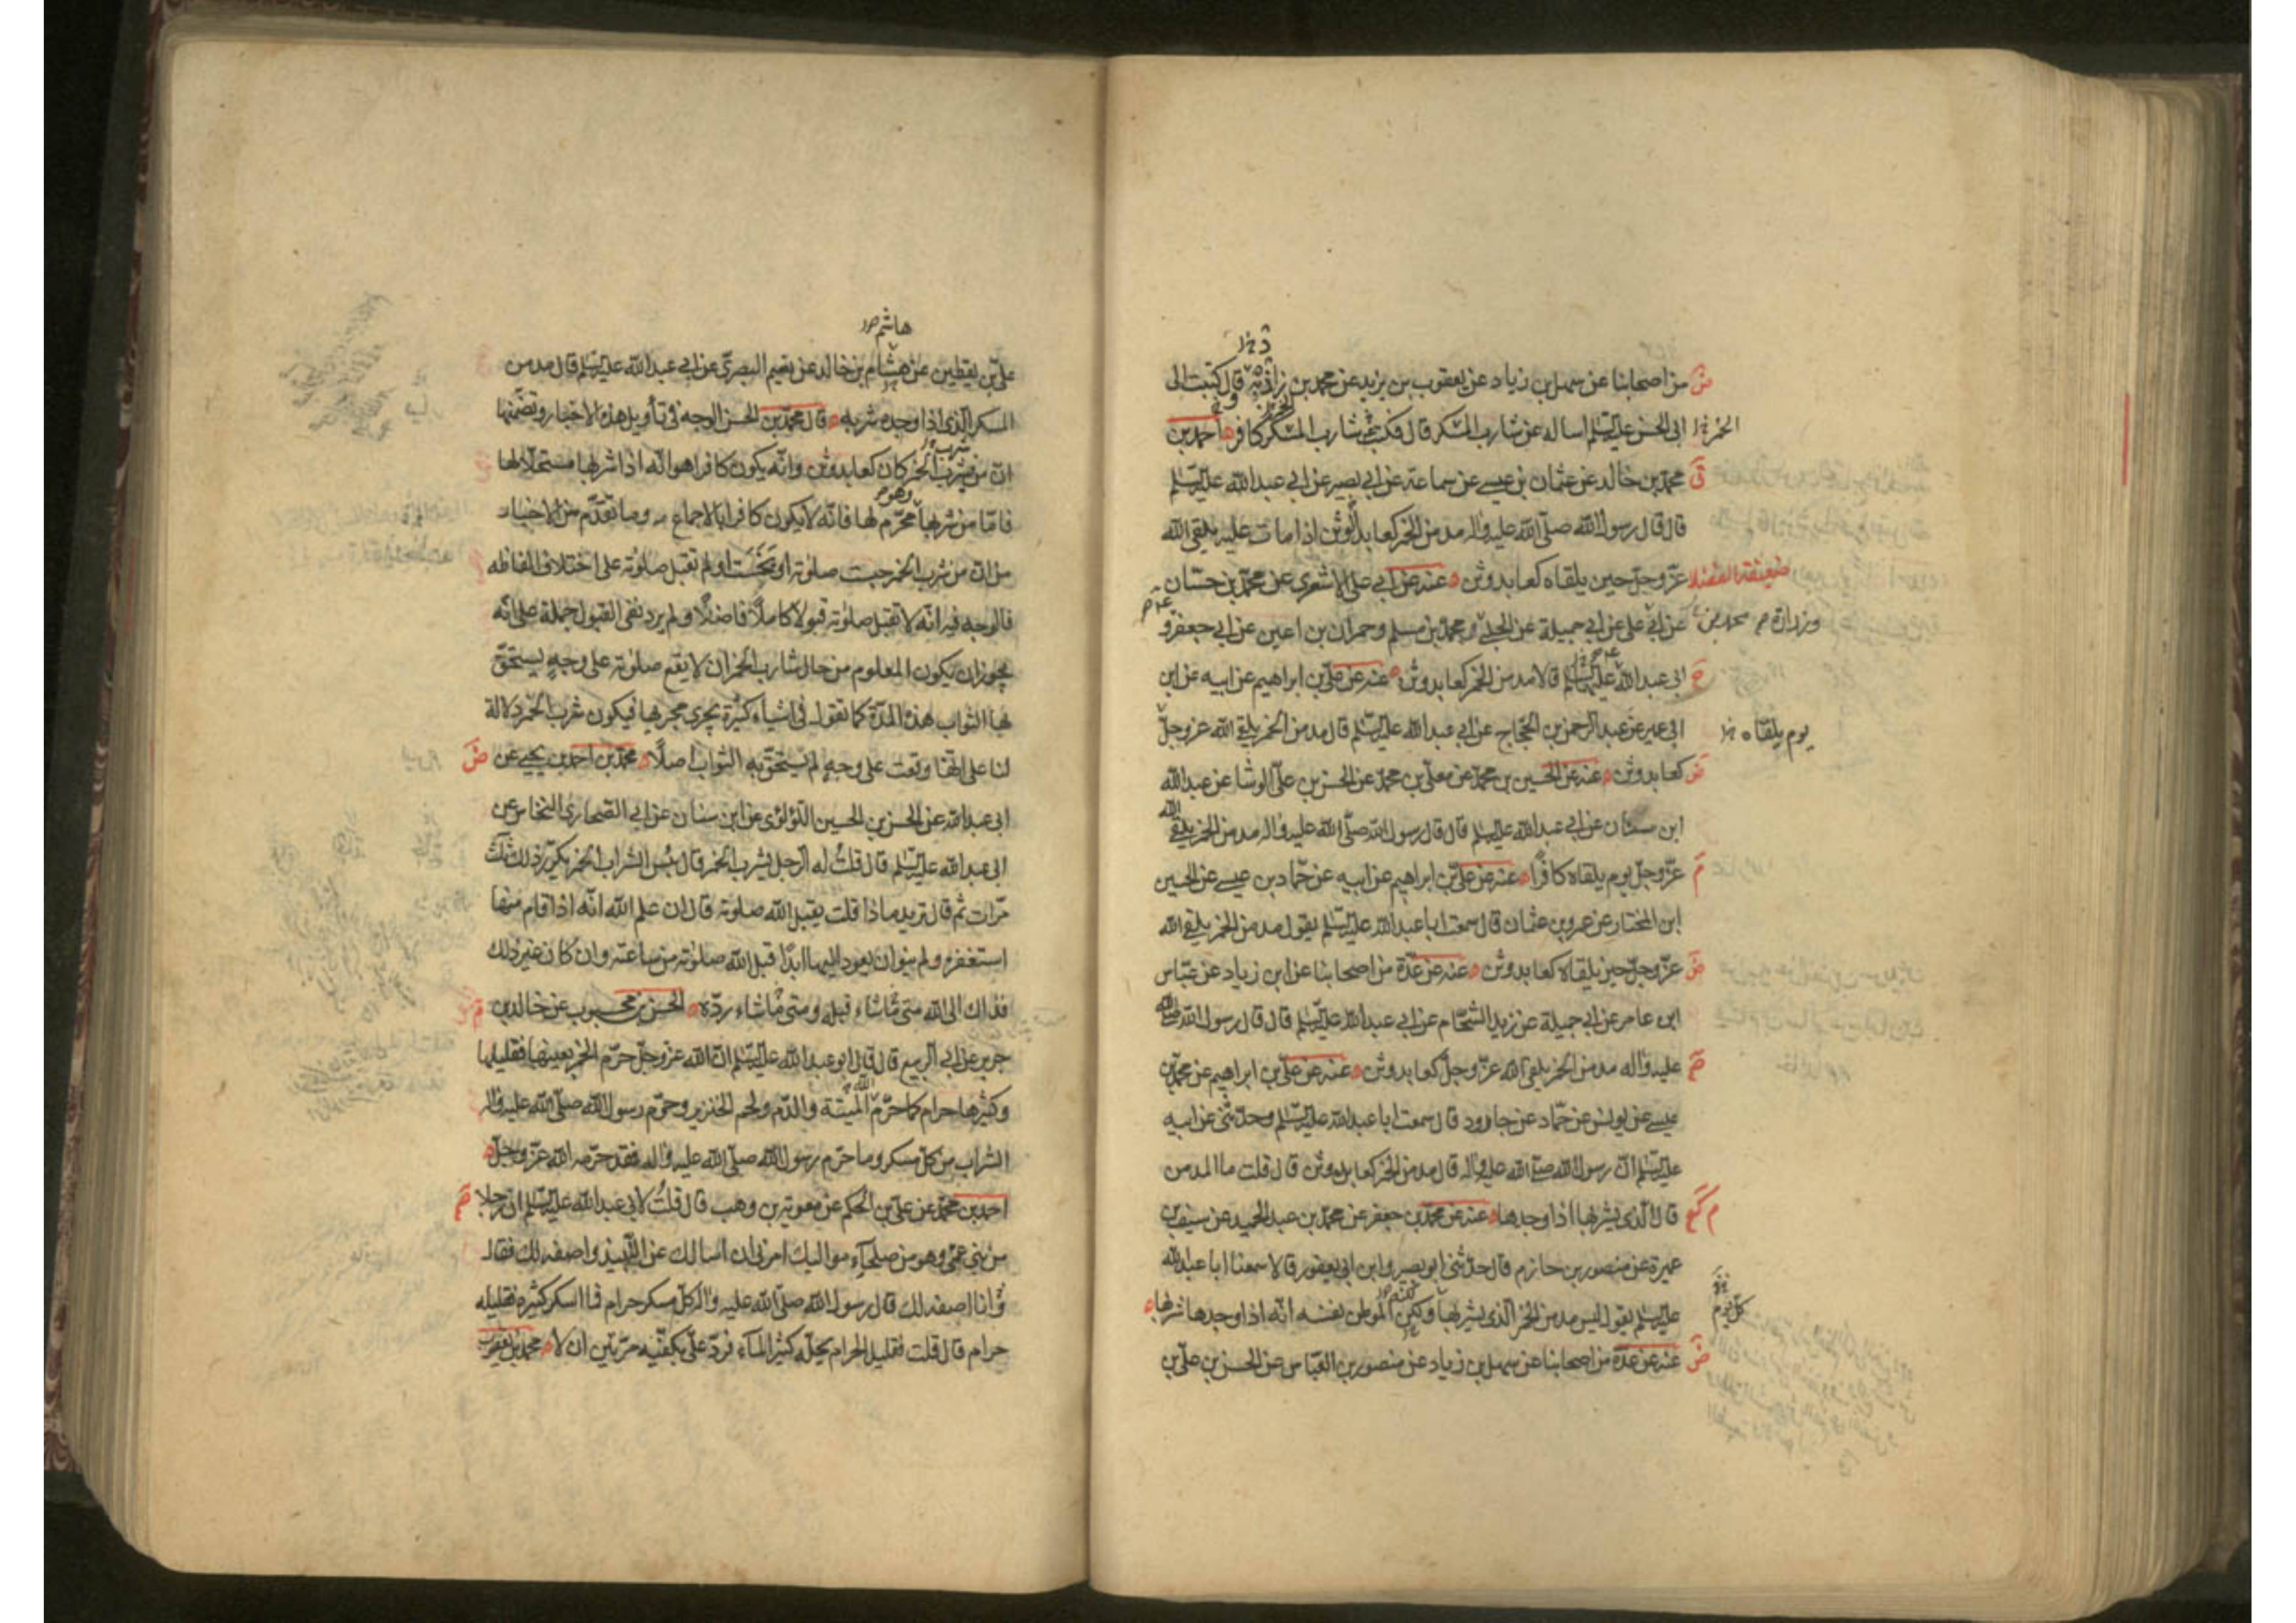 من اصحابنا عن سهل بن زياد عن يعقوب بن يزيد عن محمد بن زاذبه قال كتبت الى
ابى الحسن عليه السلم اساله عن شارب المسكر قال فكتب شارب المسكر كافر احمد بن
محمد بن خالد عن عثمان بن عيسى عن سماعة عن ابى بصير عن ابى عبد الله عليه السلم
قال قال رسول الله صلى الله عليه واله مدمن الخمر كعابد الوثن اذا مات عليه يلقى الله
عز وجل حين يلقاه كعابد وثن عنه عن ابى على الاشعرى عن محمد بن حسان
عن ابى على عن ابى جميلة عن الحلبى و محمد بن مسلم وحمران بن اعين عن ابى جعفر و
وزرارة محمد بن
ابى عبد الله عليهما السلم قالا مدمن الخمر كعابد وثن عنه عن على بن ابراهيم عن ابيه عن ابن
ابى عمير عن عبد الرحمن بن الحجاج عن ابى عبد الله عليه السلم قال مدمن الخمر يلقى الله عز وجل
يوم يلقاه
كعابد وثن عنه عن الحسين بن محمد عن معلى بن محمد عن الحسن بن على الوشا عن عبد الله
ابن سنان عن ابى عبد الله عليه السلم قال قال رسول الله صلى الله عليه واله مدمن الخمر يلقى الله
عز وجل يوم يلقاه كافرا عنه عن على بن ابراهيم عن ابيه عن حماد بن عيسى عن الحسين
ابن المختار عن عمرو بن عثمان قال سمعت ابا عبد الله عليه السلم يقول مدمن الخمر يلقى الله
عز وجل حين يلقاه كعابد وثن عنه عن عدة من اصحابنا عن ابن زياد عن عباس
ابن عامر عن ابى جميلة عن زيد الشحام عن ابى عبد الله عليه السلم قال قال رسول الله صلى الله
عليه واله مدمن الخمر يلقى الله عز وجل كعابد وثن عنه عن على بن ابراهيم عن محمد بن
عيسى عن يونس عن حماد عن جارود قال سمعت ابا عبد الله عليه السلم وحدثنى عن ابيه
عليه السلم ان رسول الله صلى الله عليه واله قال مدمن الخمر كعابد وثن قال قلت ما المدمن
قال الذى يشربها اذا وجدها عنه عن محمد بن جعفر عن محمد بن عبد الحميد عن سيف بن
عميرة عن منصور بن حازم قال حدثنى ابو بصير وابن ابى يعفور قالا سمعنا ابا عبد الله
عليه السلم يقول ليس مدمن الخمر الذى يشربها ولكن الموطن نفسه انه اذا وجدها شربها
كل يوم
عنه عن عدة من اصحابنا عن سهل بن زياد عن منصور بن العباس عن الحسن بن على بن
هاشم
على بن يقطين عن هشام بن خالد عن نعيم البصرى عن ابى عبد الله عليه السلم قال مدمن
المسكر الذى اذا وجده شربه قال محمد بن الحسن الوجه فى تأويل هذه الاخبار وتضمنها
ان من يشرب الخمر كان كعابد وثن وانه يكون كافرا هو انه اذا شربها مستحلا لها
فاما من شربها محرم لها فانه لا يكون كافرا بالاجماع وما تقدم من الاخبار
من ان من شرب الخمر حبت صلوته او بخست او لم تقبل صلوته على اختلاف الفاظه
فالوجه فيه انه لا تقبل صلوته قبولا كاملا فاضلا ولم يرد نفى القبول جملة على انه
يجوز ان يكون المعلوم من حال شارب الخمر ان لا يقع صلوته على وجه يستحق
لها الثواب هذه المدة كما نقوله فى اشياء كثيرة يجرى مجريها فيكون شرب الخمر دلالة
لنا على انها وقعت على وجه لم يستحق به الثواب اصلا محمد بن احمد بن يحيى عن
ابى عبد الله عن الحسن بن الحسين اللؤلؤى عن ابن سنان عن ابى الصحارى النخاس عن
ابى عبد الله عليه السلم قال قلت له الرجل يشرب الخمر قال بئس الشراب الخمر يكرر ذلك ثلث
مرات ثم قال تريد ماذا قلت يقبل الله صلوته قال ان علم الله انه اذا قام منها
استغفره ولم ينو ان يعود اليها ابدا قبل الله صلوته من ساعته وان كان غير ذلك
فذاك الى الله متى ما شاء قبله ومتى ما شاء رده الحسن بن محبوب عن خالد بن
جرير عن ابى الربيع قال قال ابو عبد الله عليه السلم ان الله عز وجل حرم الخمر بعينها فقليلها
وكثيرها حرام كما حرم الله الميتة والدم ولحم الخنزير وحرم رسول الله صلى الله عليه واله
الشراب من كل مسكر وما حرم رسول الله صلى الله عليه واله فقد حرمه الله عز وجل
احمد بن محمد عن على بن الحكم عن معوية بن وهب قال قلت لابى عبد الله عليه السلم ان رجلا
من بنى عمى وهو من صلحاء مواليك امرنى ان اسالك عن النبيذ واصفه لك فقال
وانا اصفه لك قال رسول الله صلى الله عليه واله كل مسكر حرام فما اسكر كثيره فقليله
حرام قال قلت فقليل الحرام يحله كثير الماء فرد على بكفيه مرتين ان لا محمد بن يعقوب